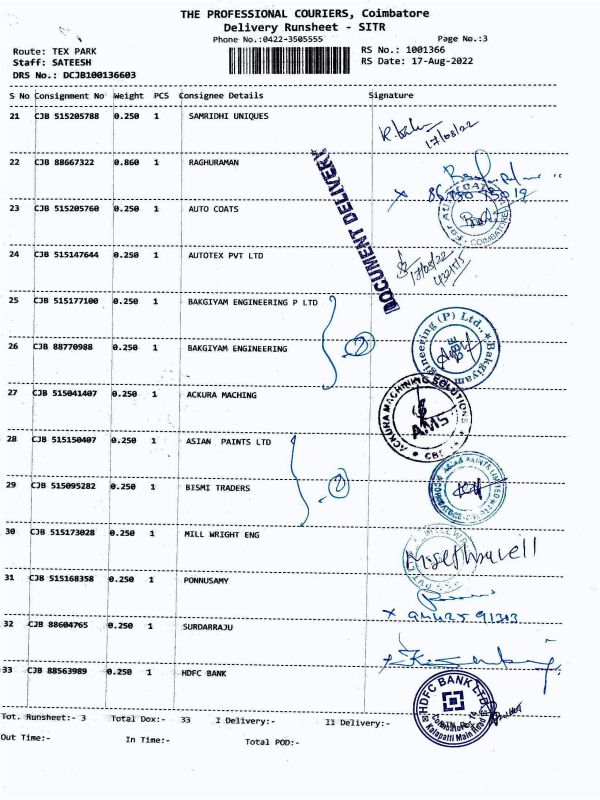 THE PROFESSIONAL COURIERS, Coimbatore
Delivery Runsheet - SITR
Phone No.:0422-3505555 Page No.:3
Route: TEX PARK RS No.: 1001366
Staff: SATEESH RS Date: 17-Aug-2022
DRS No.: DCJB100136603
S No Consignment No Weight PCS Consignee Details Signature
21 CJB 515205788 0.250 1 SAMRIDHI UNIQUES
17/08/22
22 CJB 88667322 0.860 1 RAGHURAMAN
DOCUMENT DELIVERY
23 CJB 515205760 0.250 1 AUTO COATS
COIMBATORE
24 CJB 515147644 0.250 1 AUTOTEX PVT LTD
17/08/22
25 CJB 515177100 0.250 1 BAKGIYAM ENGINEERING P LTD
2
26 CJB 88770988 0.250 1 BAKGIYAM ENGINEERING
Bakgiyam Engineering (P) Ltd.,
27 CJB 515041407 0.250 1 ACKURA MACHING
ACKURA MACHINING SOLUTIONS
AMS
28 CJB 515150407 0.250 1 ASIAN PAINTS LTD
2
29 CJB 515095282 0.250 1 BISMI TRADERS
30 CJB 515173028 0.250 1 MILL WRIGHT ENG
31 CJB 515168358 0.250 1 PONNUSAMY
32 CJB 88604765 0.250 1 SURDARRAJU
33 CJB 88563989 0.250 1 HDFC BANK
HDFC BANK LTD
Kalapatti Main Road
Tot. Runsheet:- 3 Total Dox:- 33 I Delivery:- II Delivery:-
Out Time:- In Time:- Total POD:-